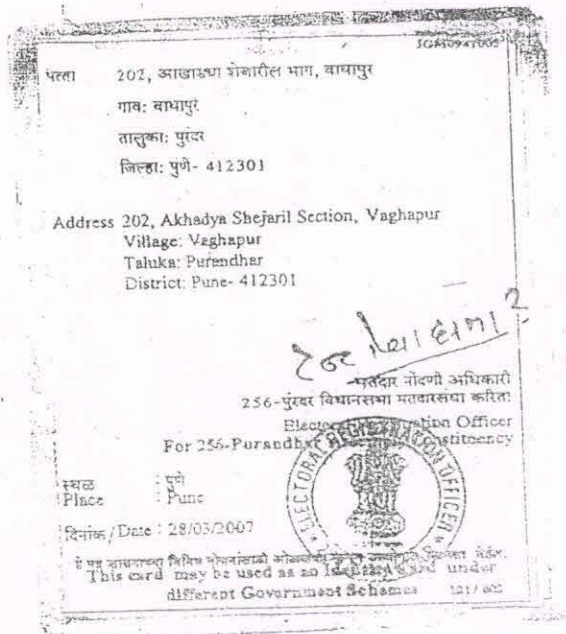 पत्ता 202, आखाडया शेजारील भाग, वाघापुर
गाव: वाघापुर
तालुका: पुरंदर
जिल्हा: पुणे- 412301
Address 202, Akhadya Shejaril Section, Vaghapur
Village: Vaghapur
Taluka: Purandhar
District: Pune- 412301
मतदार नोंदणी अधिकारी
256-पुरंदर विधानसभा मतदारसंघा करिता
Electoral Registration Officer
For 256-Purandhar Constituency
ELECTORAL REGISTRATION OFFICER
स्थळ : पुणे
Place : Pune
दिनांक / Date : 28/03/2007
This card may be used as an Identity Card under
different Government Schemes